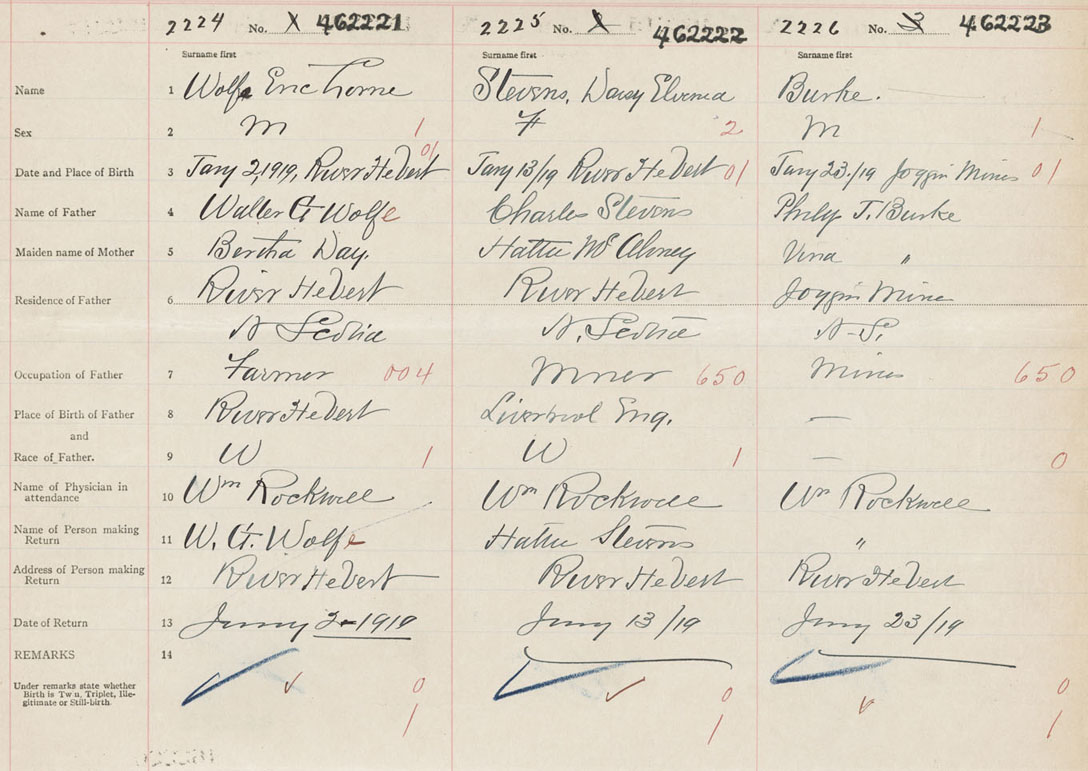 2224 No. X 462221 2225 No. X 462222 2226 No. 3 462223
Surname first Surname first Surname first
Name 1 Wolfe Eric Lorne Stevens, Daisy Burke.
Sex 2 M 1 F 2 M 1
Date and Place of Birth 3 Jany 2, 1919, River Hebert 01 Jany 13/19 River Hebert 01 Jany 23./19 Joggin Mines 01
Name of Father 4 Walter G Wolfe Charles Stevens Philip T. Burke
Maiden name of Mother 5 Bertha Day. Hattie Vina "
Residence of Father 6 River Hebert River Hebert Joggin Mine
N Scotia N. Scotia N-S.
Occupation of Father 7 Farmer 004 Miner 650 Mines 650
Place of Birth of Father 8 River Hebert Liverpool Eng. —
and
Race of Father. 9 W 1 W 1 — 0
Name of Physician in attendance 10 Wm Rockwell Wm Rockwell Wm Rockwell
Name of Person making Return 11 W. G. Wolfe Hattie Stevens "
Address of Person making Return 12 River Hebert River Hebert River Hebert
Date of Return 13 Jany 2-1919 Jany 13/19 Jany 23/19
REMARKS 14
Under remarks state whether Birth is Twin, Triplet, Ille-
gitimate or Still-birth. 0 0 0
1 1 1